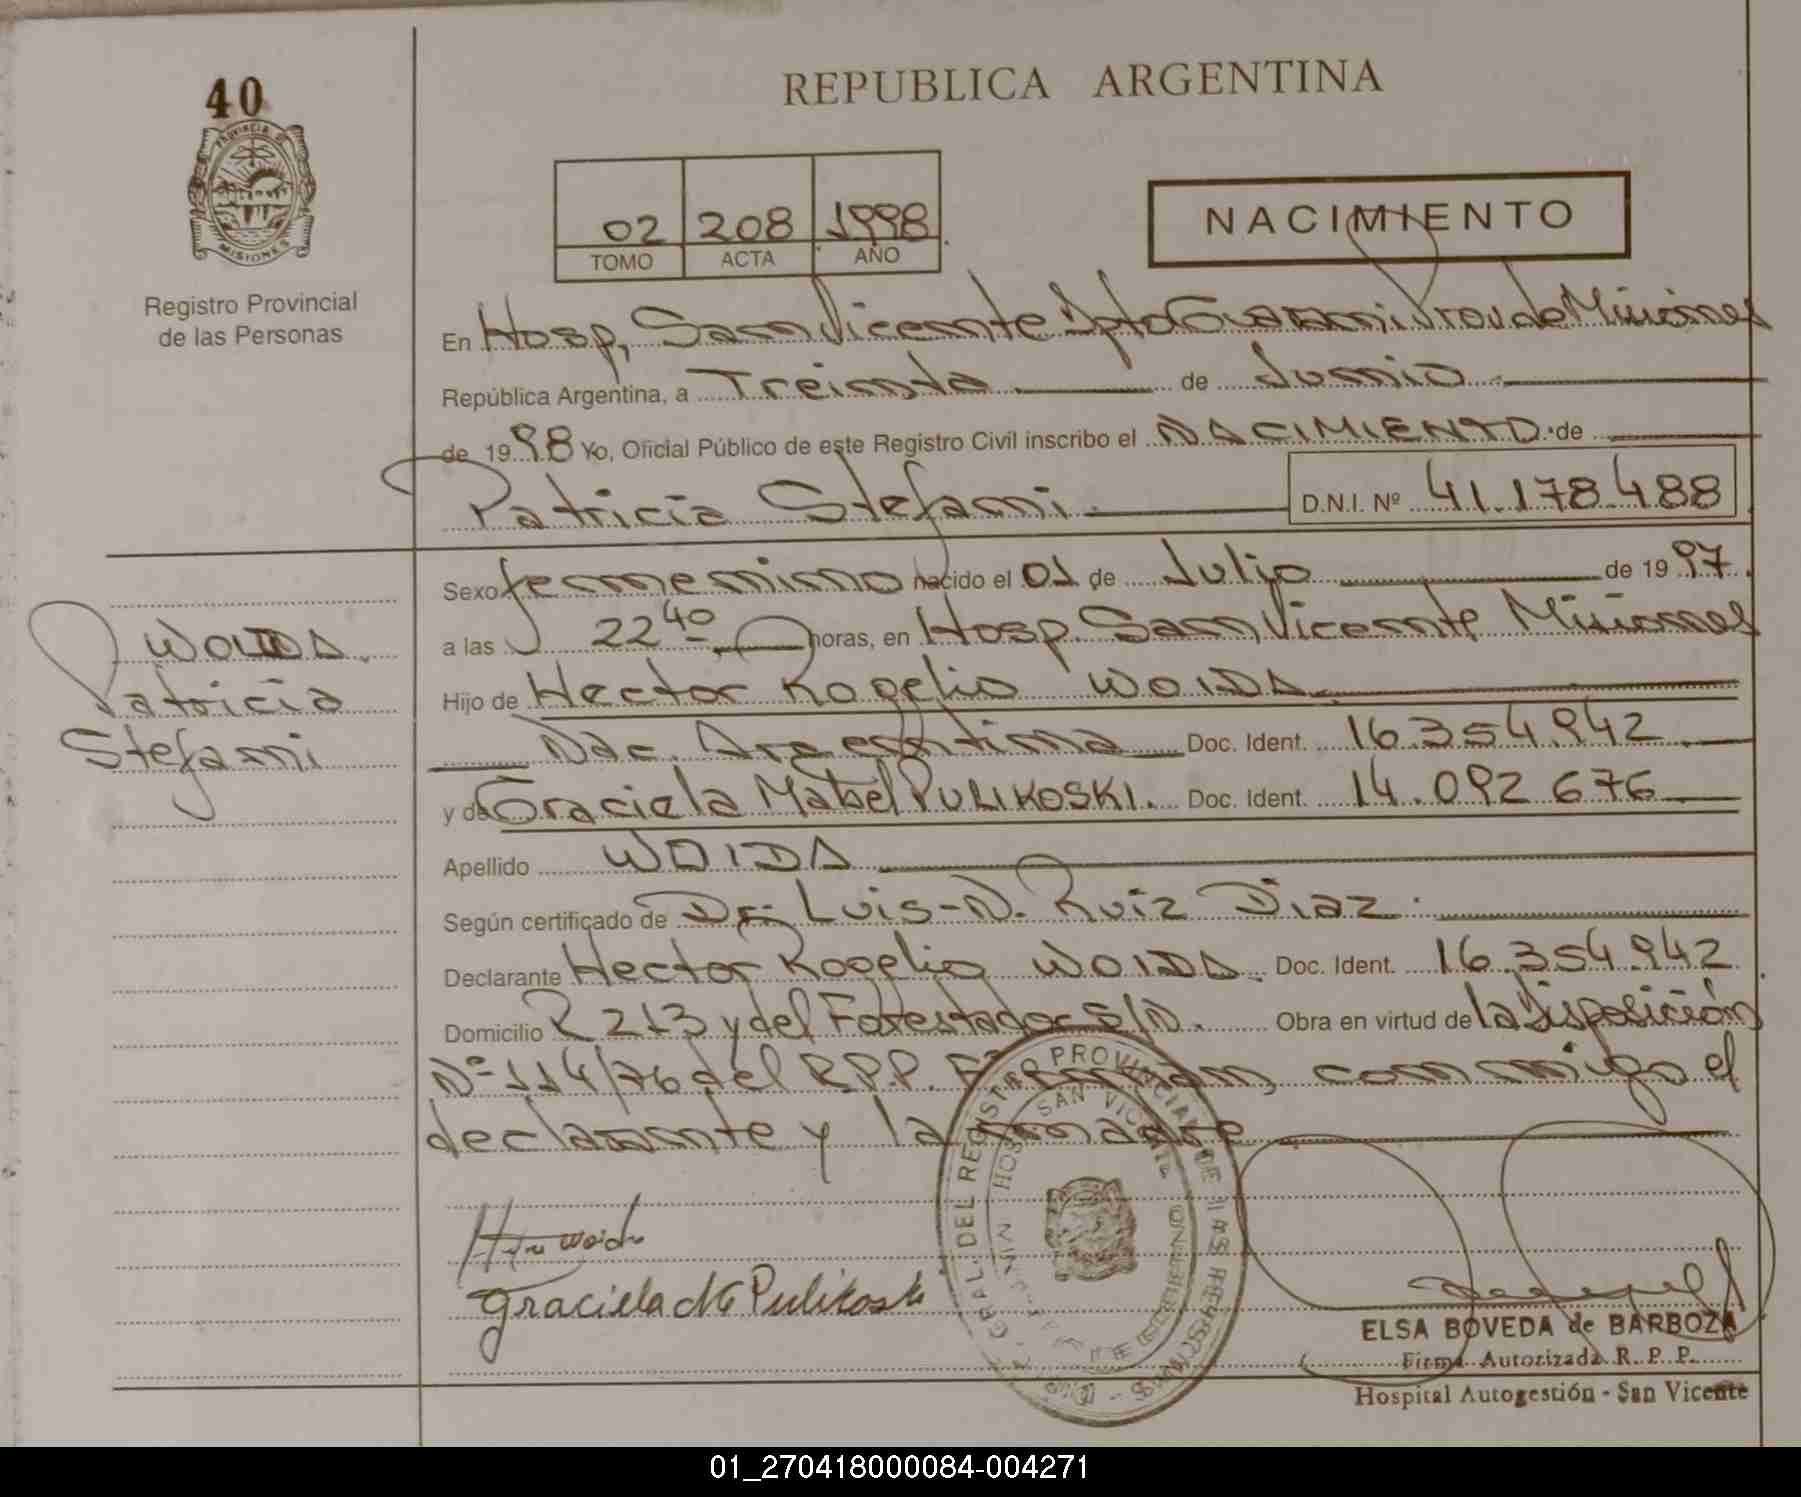 40
PROVINCIA DE
MISIONES
Registro Provincial
de las Personas
REPUBLICA ARGENTINA
02 208 1998
TOMO ACTA AÑO
NACIMIENTO
En Hosp, San Vicente Dpto Guarani Prov de Misiones
República Argentina, a Treinta de Junio
de 1998 Yo, Oficial Público de este Registro Civil inscribo el NACIMIENTO de
Patricia Stefani D.N.I. Nº 41.178.488
Sexo femenino nacido el 01 de Julio de 1997.
a las 22 40 horas, en Hosp. San Vicente Misiones
Hijo de Hector Rogelio WOIDA
Nac. Argentina Doc. Ident. 16.354.942
y de Graciela Mabel PULIKOSKI. Doc. Ident. 14.092.676
Apellido WOIDA
Según certificado de Dr. Luis-N. Ruiz Diaz.
Declarante Hector Rogelio WOIDA Doc. Ident. 16.354.942
Domicilio R 213 y del Forestador S/N. Obra en virtud de la Disposición
Nº 114/76 del R.P.P. Firman conmigo el
declarante y la madre
WOIDA
Patricia
Stefani
Woida
Graciela M Pulikoski
GRAL. DEL REGISTRO PROVINCIAL DE LAS PERSONAS
HOSP. SAN VICENTE
ELSA BOVEDA de BARBOZA
Firma Autorizada R. P. P.
Hospital Autogestión - San Vicente
01_270418000084-004271